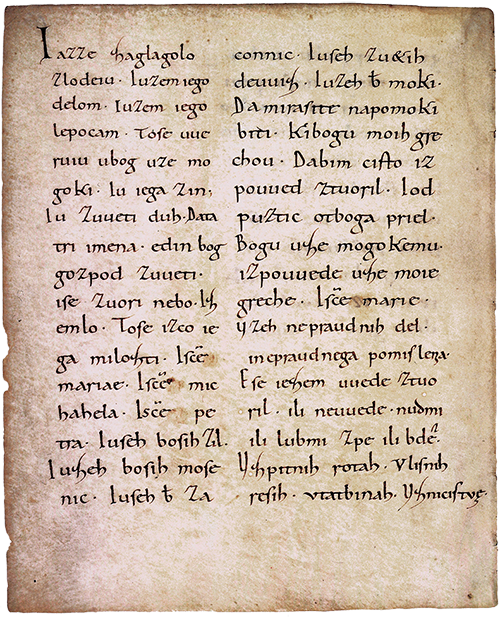 Iazze zaglagolo
zlodeiu · Iuzem iego
delom · Iuzem iego
lepocam · Tose uue
ruiu ubog uze mo
goki · Iu iega zin ;
Iu Zuueti duh · Data
tri imena · edin bog
gozpod Zuueti ·
ise Zuori nebo · Izh
emlo · Tose izco ie
ga milozti · Isc̄e
mariae · Isc̄e mic
hahela · Isc̄e pe
tra · Iuseh bosih Zil ·
Iuzeh bosih mose
nic · Iuseh b̄ Za
connic · Iuseh Zu&ih
deuuih · Iuzeh b̄ moki ·
Da mirastite napomoki
biti · Kibogu moih gre
chou · Dabim cisto iz
pouued ztuoril · Iod
puztic otboga priel ·
Bogu uze mogokemu ·
izpouuede uze moie
greche · Isc̄e marie ·
uzeh nepraudnih del ·
inepraudnega pomislenia ·
Ese iezem uuede ztuo
ril · ili neuuede · nudmi
ili lubmi Zpe ili bdē ·
Uzpitnih rotah · Vlisnih
resih · vtatbinah · Uznicistuę ·